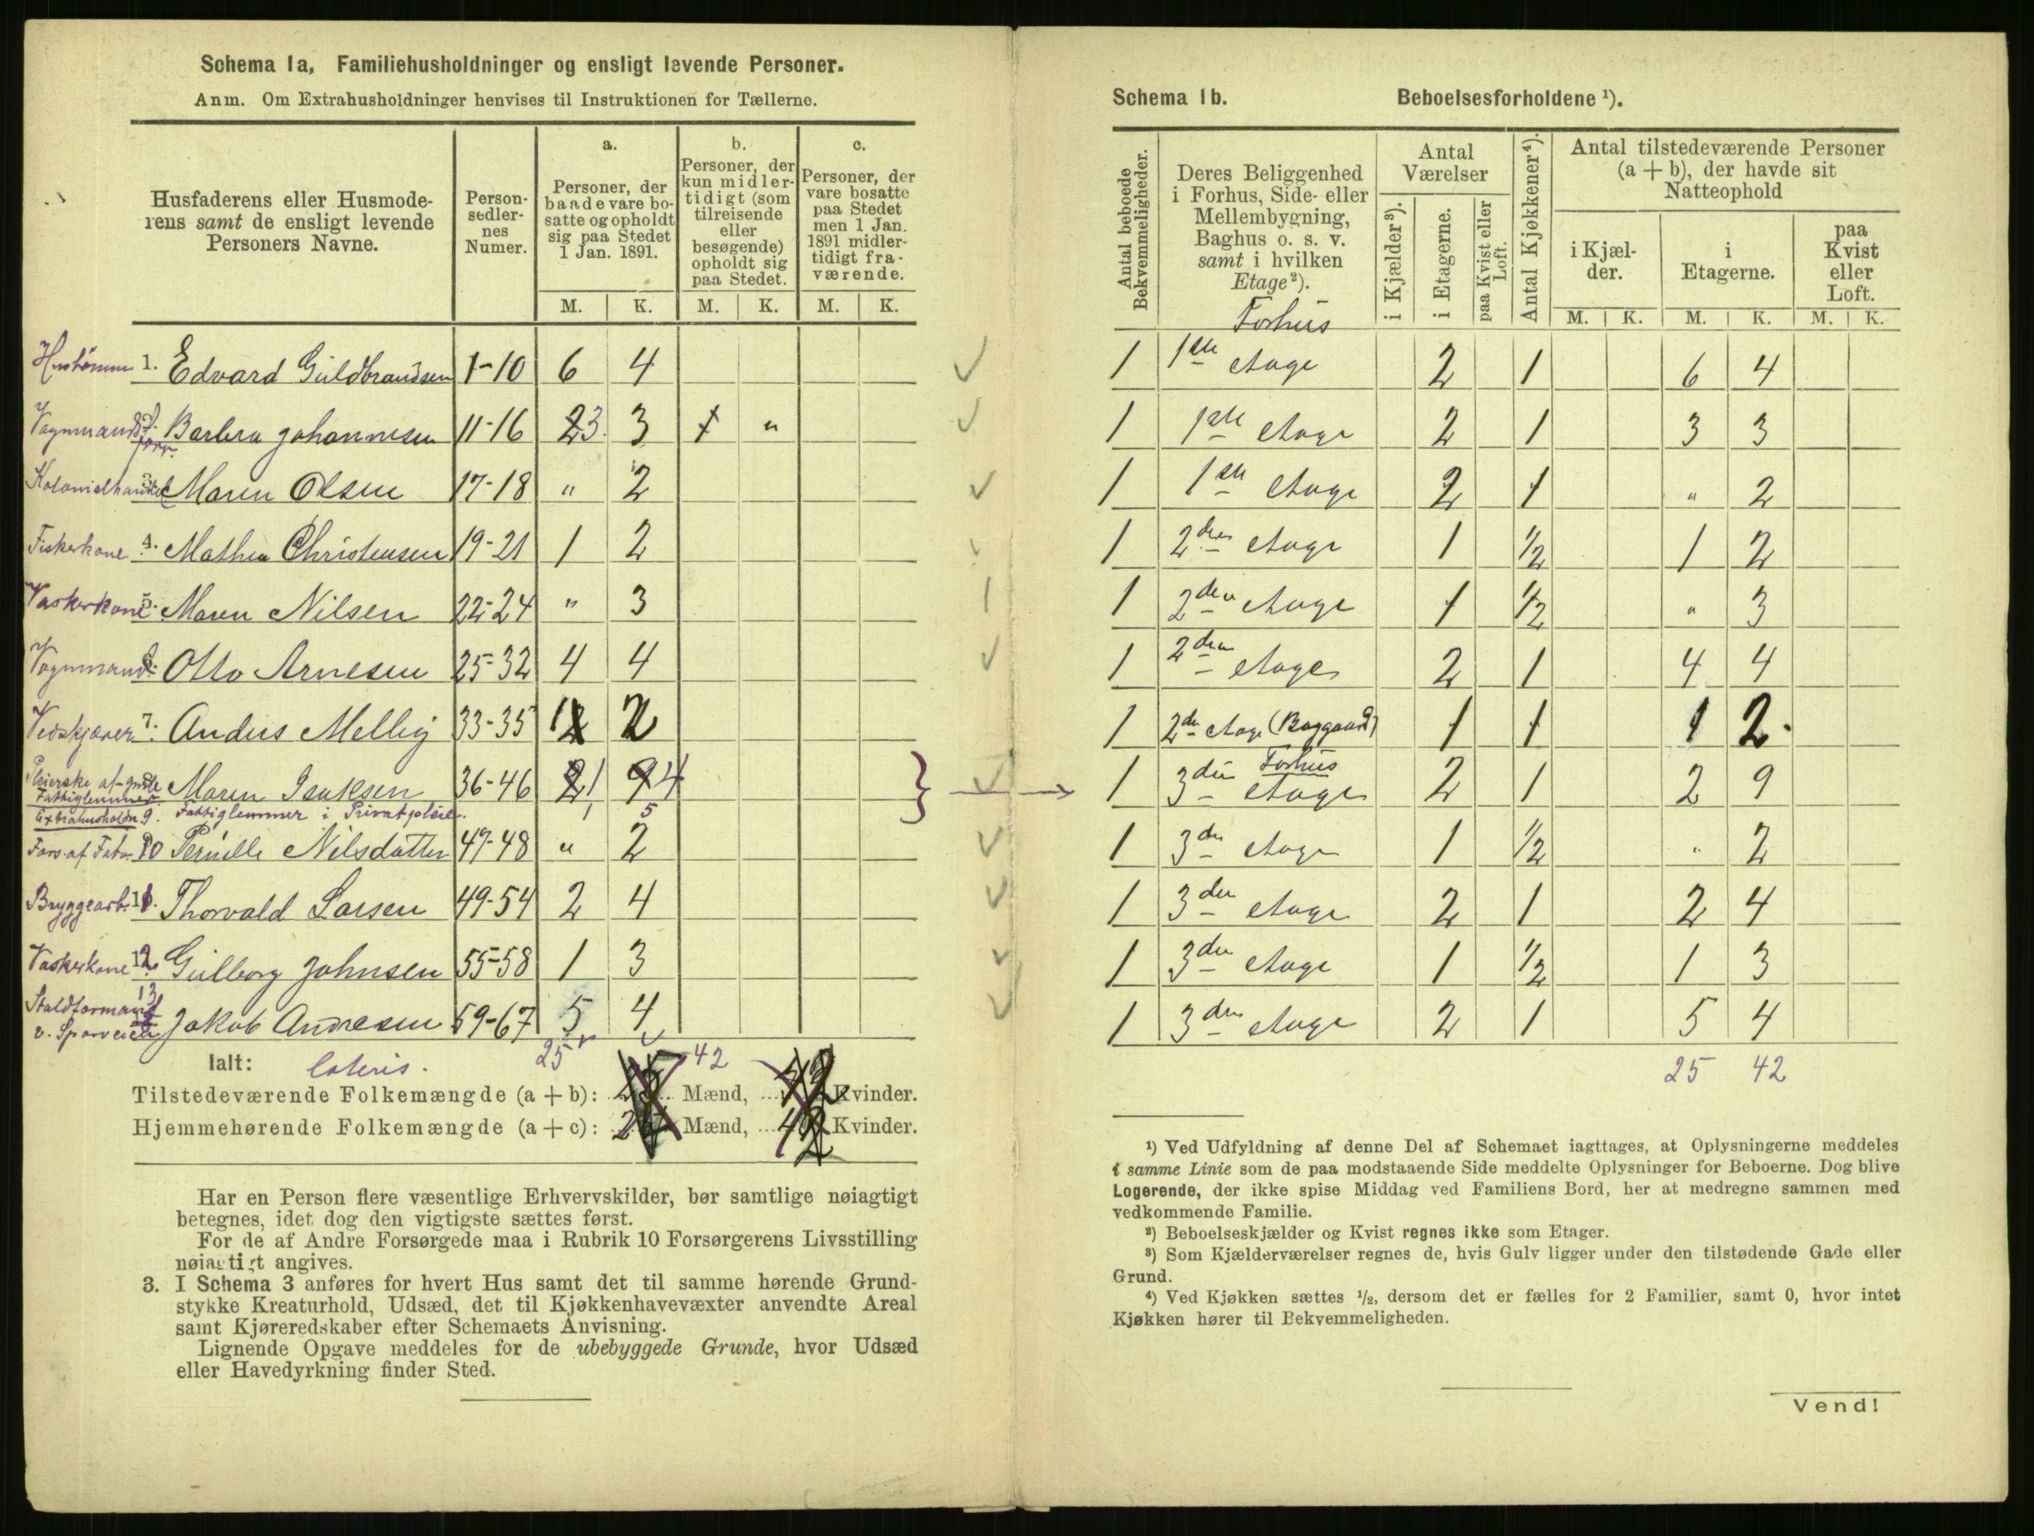 Schema 1a, Familiehusholdninger og ensligt levende Personer.
Anm. Om Extrahusholdninger henvises til Instruktionen for Tællerne.
Husfaderens eller Husmode-
rens samt de ensligt levende
Personers Navne.
Person-
sedler-
nes
Numer.
a.
Personer, der
baade vare bo-
satte og opholdt
sig paa Stedet
1 Jan. 1891.
b.
Personer, der
kun midler-
tidigt (som
tilreisende
eller
besøgende)
opholdt sig
paa Stedet.
c.
Personer, der
vare bosatte
paa Stedet
men 1 Jan.
1891 midler-
tidigt fra-
værende.
M. K. M. K. M. K.
1. Edvard Guldbrandsen 1-10 6 4
Vognmands forr. Barbra Johannesen 11-16 2 3 3 1 "
Kolonialhandel 3. Maren Olsen 17-18 " 2
Fiskerkone 4. Mathea Christensen 19-21 1 2
Vaskerkone 5. Maren Nilsen 22-24 " 3
Vognmand 6. Otto Arnesen 25-32 4 4
Vedskjærer 7. Anders Mellig 33-35 1 2
Pleierske af gmle Fattiglemmer 8. Maren Isaksen 36-46 2 1 9 4
Extrahusholdn 9. Fattiglemmer i Privatpleie. 1 5
Fors. af Fatv. 10 Pernille Nilsdatter 47-48 " 2
Bryggearb. 11. Thorvald Larsen 49-54 2 4
Vaskerkone 12 Gulborg Johnsen 55-58 1 3
Staldformand v. Sporveien 13 Jakob Andresen 59-67 5 4
Ialt: lateris. 25 42
Tilstedeværende Folkemængde (a + b): Mænd, Kvinder.
Hjemmehørende Folkemængde (a + c): Mænd, Kvinder.
Har en Person flere væsentlige Erhvervskilder, bør samtlige nøiagtigt
betegnes, idet dog den vigtigste sættes først.
For de af Andre Forsørgede maa i Rubrik 10 Forsørgerens Livsstilling
nøiagtigt angives.
3. I Schema 3 anføres for hvert Hus samt det til samme hørende Grund-
stykke Kreaturhold, Udsæd, det til Kjøkkenhavevæxter anvendte Areal
samt Kjøreredskaber efter Schemaets Anvisning.
Lignende Opgave meddeles for de ubebyggede Grunde, hvor Udsæd
eller Havedyrkning finder Sted.
Schema 1b. Beboelsesforholdene ¹).
Antal beboede
Bekvemmeligheder.
Deres Beliggenhed
i Forhus, Side- eller
Mellembygning,
Baghus o. s. v.
samt i hvilken
Etage ²).
Antal
Værelser
i Kjælder ³).
i Etagerne.
paa Kvist eller
Loft.
Antal Kjøkkener ⁴).
Antal tilstedeværende Personer
(a + b), der havde sit
Natteophold
i Kjæl-
der.
i
Etagerne.
paa
Kvist
eller
Loft.
M. K. M. K. M. K.
Forhus
1 1ste Etage 2 1 6 4
1 1ste Etage 2 1 3 3
1 1ste Etage 2 1 " 2
1 2den Etage 1 1/2 1 2
1 2den Etage 1 1/2 " 3
1 2den Etage 2 1 4 4
1 2de Etage (Baggaard) 1 1 1 2
1 3die Forhus Etage 2 1 2 9
1 3die Etage 1 1/2 " 2
1 3die Etage 2 1 2 4
1 3die Etage 1 1/2 1 3
1 3die Etage 2 1 5 4
25 42
¹) Ved Udfyldning af denne Del af Schemaet iagttages, at Oplysningerne meddeles
i samme Linie som de paa modstaaende Side meddelte Oplysninger for Beboerne. Dog blive
Logerende, der ikke spise Middag ved Familiens Bord, her at medregne sammen med
vedkommende Familie.
²) Beboelseskjælder og Kvist regnes ikke som Etager.
³) Som Kjælderværelser regnes de, hvis Gulv ligger under den tilstødende Gade eller
Grund.
⁴) Ved Kjøkken sættes 1/2, dersom det er fælles for 2 Familier, samt 0, hvor intet
Kjøkken hører til Bekvemmeligheden.
Vend!